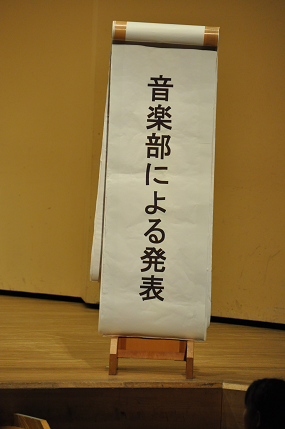 音楽部による発表